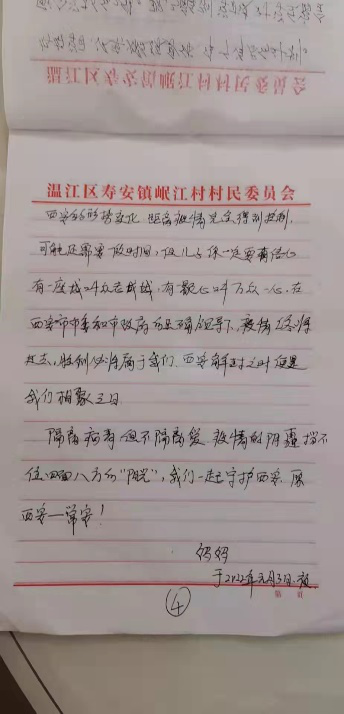 温江区寿安镇岷江村村民委员会
温江区寿安镇岷江村村民委员会
西安的形势变化，距离被情完全得到控制，
可能还需要一段时间，但儿子你一定要有信心
有一座城叫众志成城，有一颗心叫万众一心，在
西安市市委和市政府的正确领导下，疫情终将
过去，胜利必将属于我们。西安解封之时便是
我们相聚之日
隔离病毒但不隔离爱，疫情的阴霾挡不
住四面八方的“阳光”，我们一起守护西安，愿
西安一常安！
妈妈
于2022年元月3日夜
第 页
④